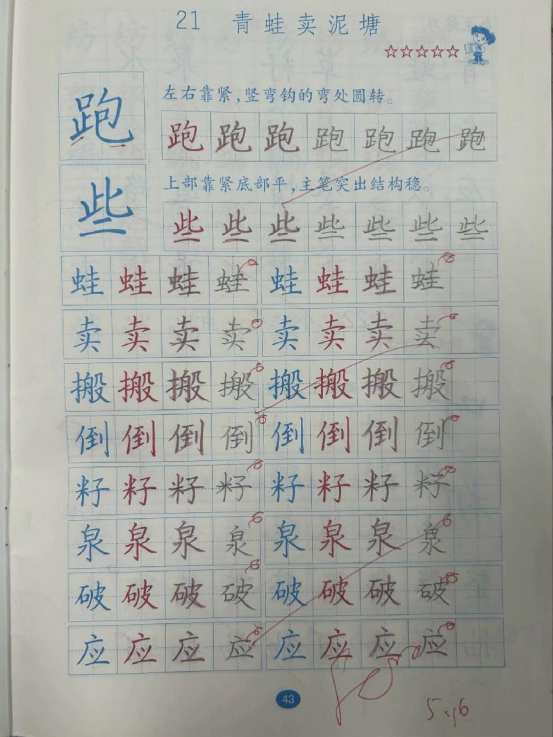 21 青蛙卖泥塘
☆☆☆☆☆
跑 左右靠紧,竖弯钩的弯处圆转。
跑跑跑跑跑跑跑
些 上部靠紧底部平,主笔突出结构稳。
些些些些些些些
蛙蛙蛙蛙蛙蛙蛙蛙
卖卖卖卖卖卖卖卖
搬搬搬搬搬搬搬搬
倒倒倒倒倒倒倒倒
籽籽籽籽籽籽籽籽
泉泉泉泉泉泉泉泉
破破破破破破破破
应应应应应应应应
43
5.16